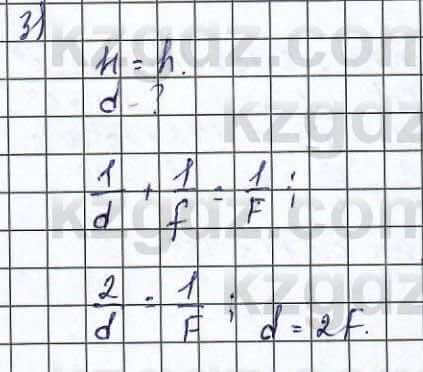 3)
H = h.
d - ?
1/d + 1/f = 1/F ;
2/d = 1/F ; d = 2F.
kzgdz.com
kzgdz
kzgdz.com
kzgdz
kzgdz.com